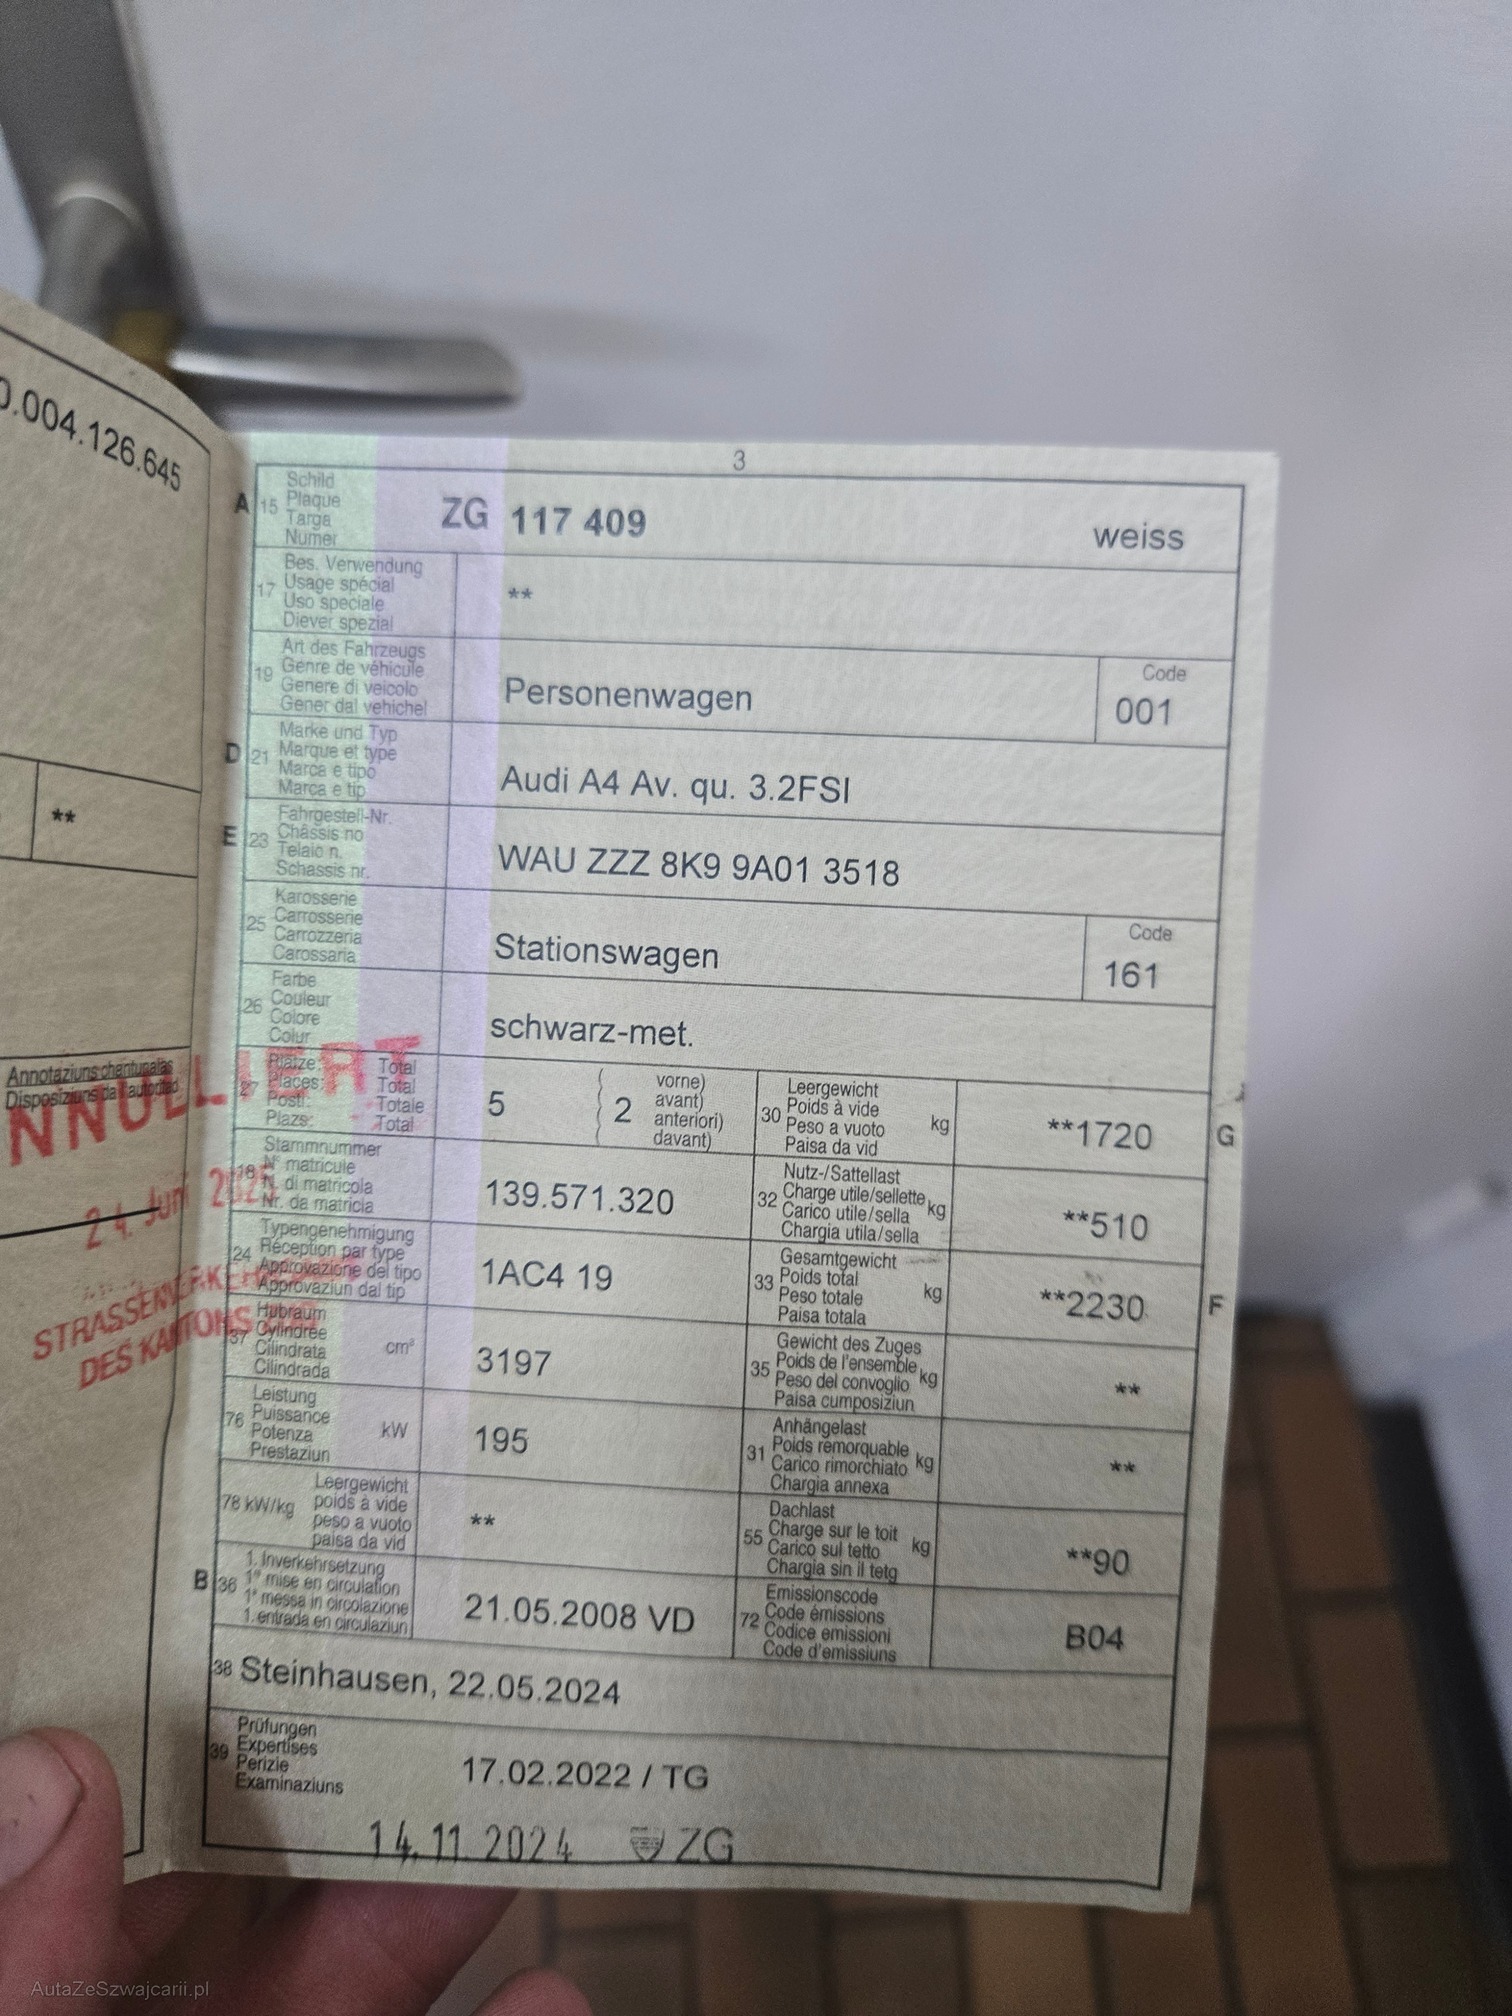 0.004.126.645
**
Annotaziuns chantunalas
Disposiziuns da l'autoritad
NNULLIERT
24. Juni 2025
STRASSENVERKEHRS
DES KANTONS
3
A 15 Schild
Plaque
Targa
Numer
ZG 117 409 weiss
17 Bes. Verwendung
Usage spécial
Uso speciale
Diever spezial
**
19 Art des Fahrzeugs
Genre de véhicule
Genere di veicolo
Gener dal vehichel
Personenwagen
Code
001
D 21 Marke und Typ
Marque et type
Marca e tipo
Marca e tip
Audi A4 Av. qu. 3.2FSI
E 23 Fahrgestell-Nr.
Châssis no
Telaio n.
Schassis nr.
WAU ZZZ 8K9 9A01 3518
25 Karosserie
Carrosserie
Carrozzeria
Carossaria
Stationswagen
Code
161
26 Farbe
Couleur
Colore
Colur
schwarz-met.
27 Plätze: Total
Places: Total
Posti: Totale
Plazs: Total
5
2
vorne)
avant)
anteriori)
davant)
30 Leergewicht
Poids à vide
Peso a vuoto
Paisa da vid
kg
**1720
G
18 Stammnummer
N° matricule
N. di matricola
Nr. da matricla
139.571.320
32 Nutz-/Sattellast
Charge utile/sellette
Carico utile/sella
Chargia utila/sella
kg
**510
24 Typengenehmigung
Réception par type
Approvazione del tipo
Approvaziun dal tip
1AC4 19
33 Gesamtgewicht
Poids total
Peso totale
Paisa totala
kg
**2230
F
37 Hubraum
Cylindrée
Cilindrata
Cilindrada
cm³
3197
35 Gewicht des Zuges
Poids de l'ensemble
Peso del convoglio
Paisa cumposiziun
kg
**
76 Leistung
Puissance
Potenza
Prestaziun
kW
195
31 Anhängelast
Poids remorquable
Carico rimorchiato
Chargia annexa
kg
**
78 kW/kg Leergewicht
poids à vide
peso a vuoto
paisa da vid
**
55 Dachlast
Charge sur le toit
Carico sul tetto
Chargia sin il tetg
kg
**90
B 36 1. Inverkehrsetzung
1re mise en circulation
1a messa in circolazione
1. entrada en circulaziun
21.05.2008 VD
72 Emissionscode
Code émissions
Codice emissioni
Code d'emissiuns
B04
38 Steinhausen, 22.05.2024
39 Prüfungen
Expertises
Perizie
Examinaziuns
17.02.2022 / TG
14.11.2024 ZG
AutaZeSzwajcarii.pl